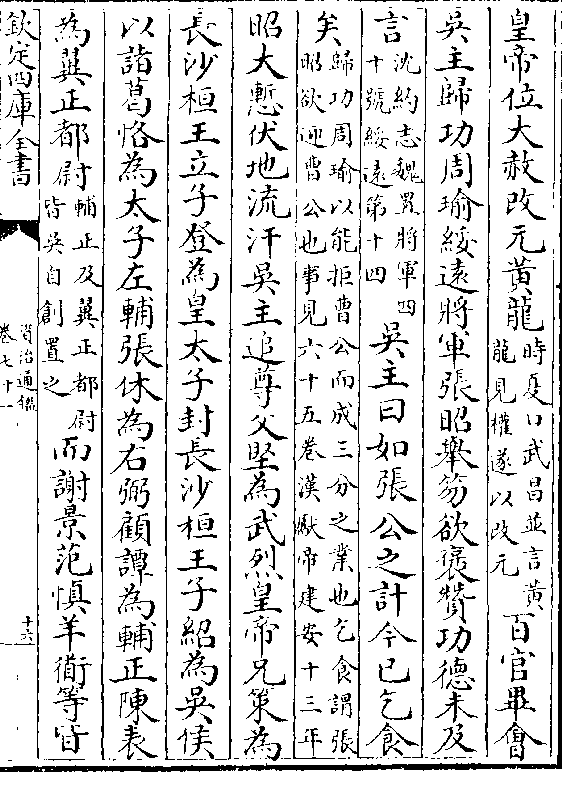 皇帝位大赦改元黃龍時夏口武昌並言黃龍見權遂以改元百官畢會
吳主歸功周瑜綏遠將軍張昭舉笏欲褒贊功德未及
言沈約志魏置將軍四十號綏遠第十四吳主曰如張公之計今已乞食
矣歸功周瑜以能拒曹公而成三分之業也乞食謂張昭欲迎曹公也事見六十五卷漢獻帝建安十三年
昭大慙伏地流汗吳主追尊父堅為武烈皇帝兄策為
長沙桓王立子登為皇太子封長沙桓王子紹為吳侯
以諸葛恪為太子左輔張休為右弼顧譚為輔正陳表
為翼正都尉輔正及翼正都尉皆吳自創置之而謝景范慎羊衜等皆
欽定四庫全書
資治通鑑
卷七十一
十六